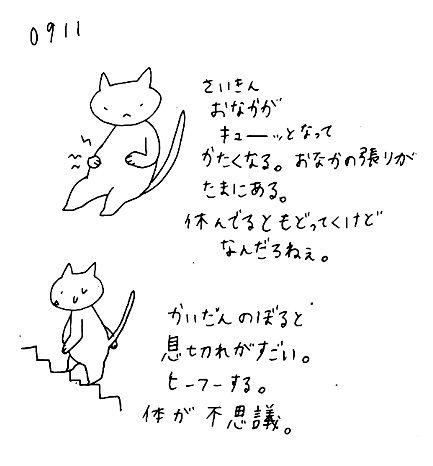 0911
さいきん
おなかが
キューーッとなって
かたくなる。おなかの張りが
たまにある。
休んでるともどってくけど
なんだろねぇ。
かいだんのぼると
息切れがすごい。
ヒーフーする。
体が不思議。